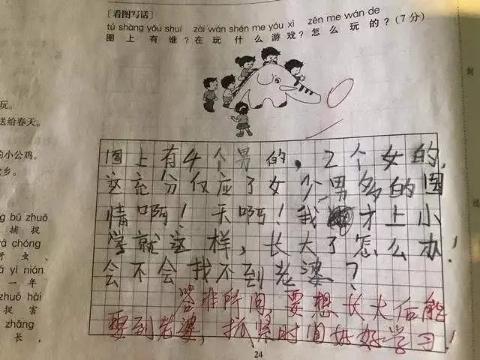 [看图写话]
tú shàng yǒu shuí zài wán shén me yóu xì zěn me wán de
图上有谁?在玩什么游戏?怎么玩的?(7分)
玩。
送给春天。
的小公鸡。
故乡。
图上有4个男的,2个女的,
这充分反应了女少男多的国
情啊!天啊!我才上小
学就这样,长大了怎么办!
会不会找不到老婆?
答非所问,要想长大后能
娶到老婆,抓紧时间好好学习!
bǔ zhuō
捕捉
chóng
虫、
yì nián
一年
zhuō hài
捉害
zhǎng
长
24